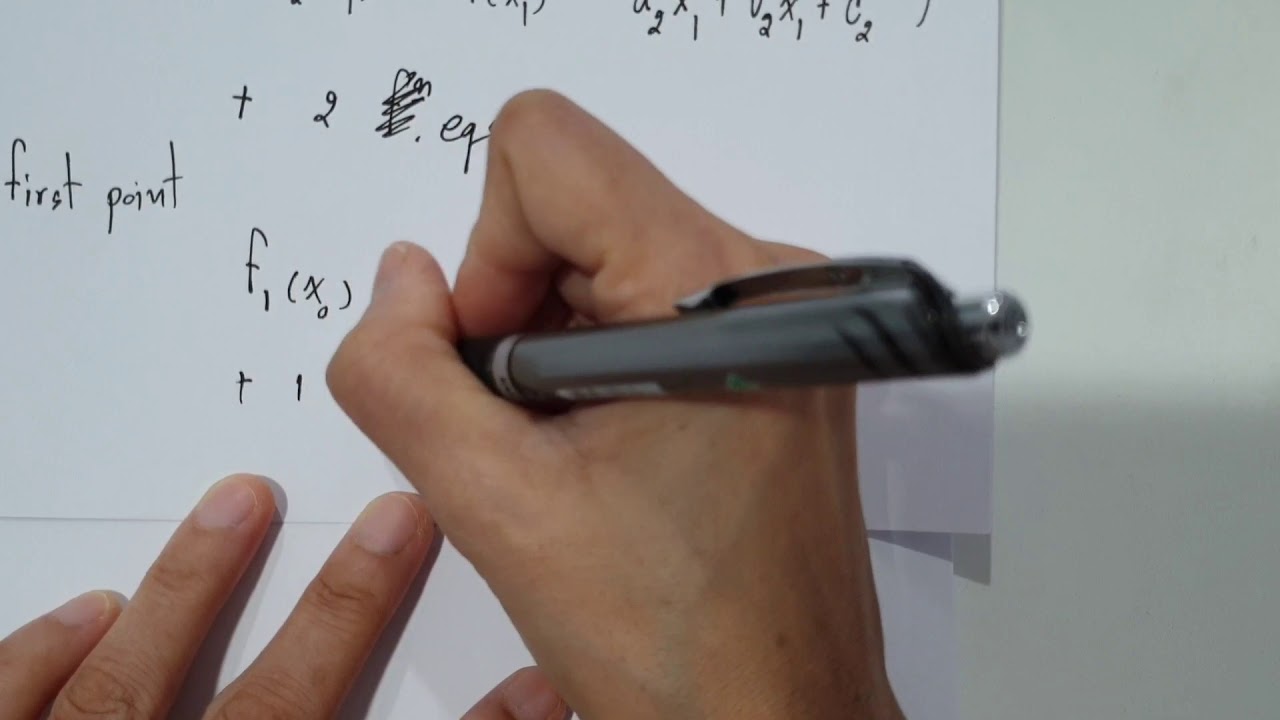 a₂x₁ + b₂x₁ + c₂ )
+ 2 eq
first point
f₁(x₀)
+ 1